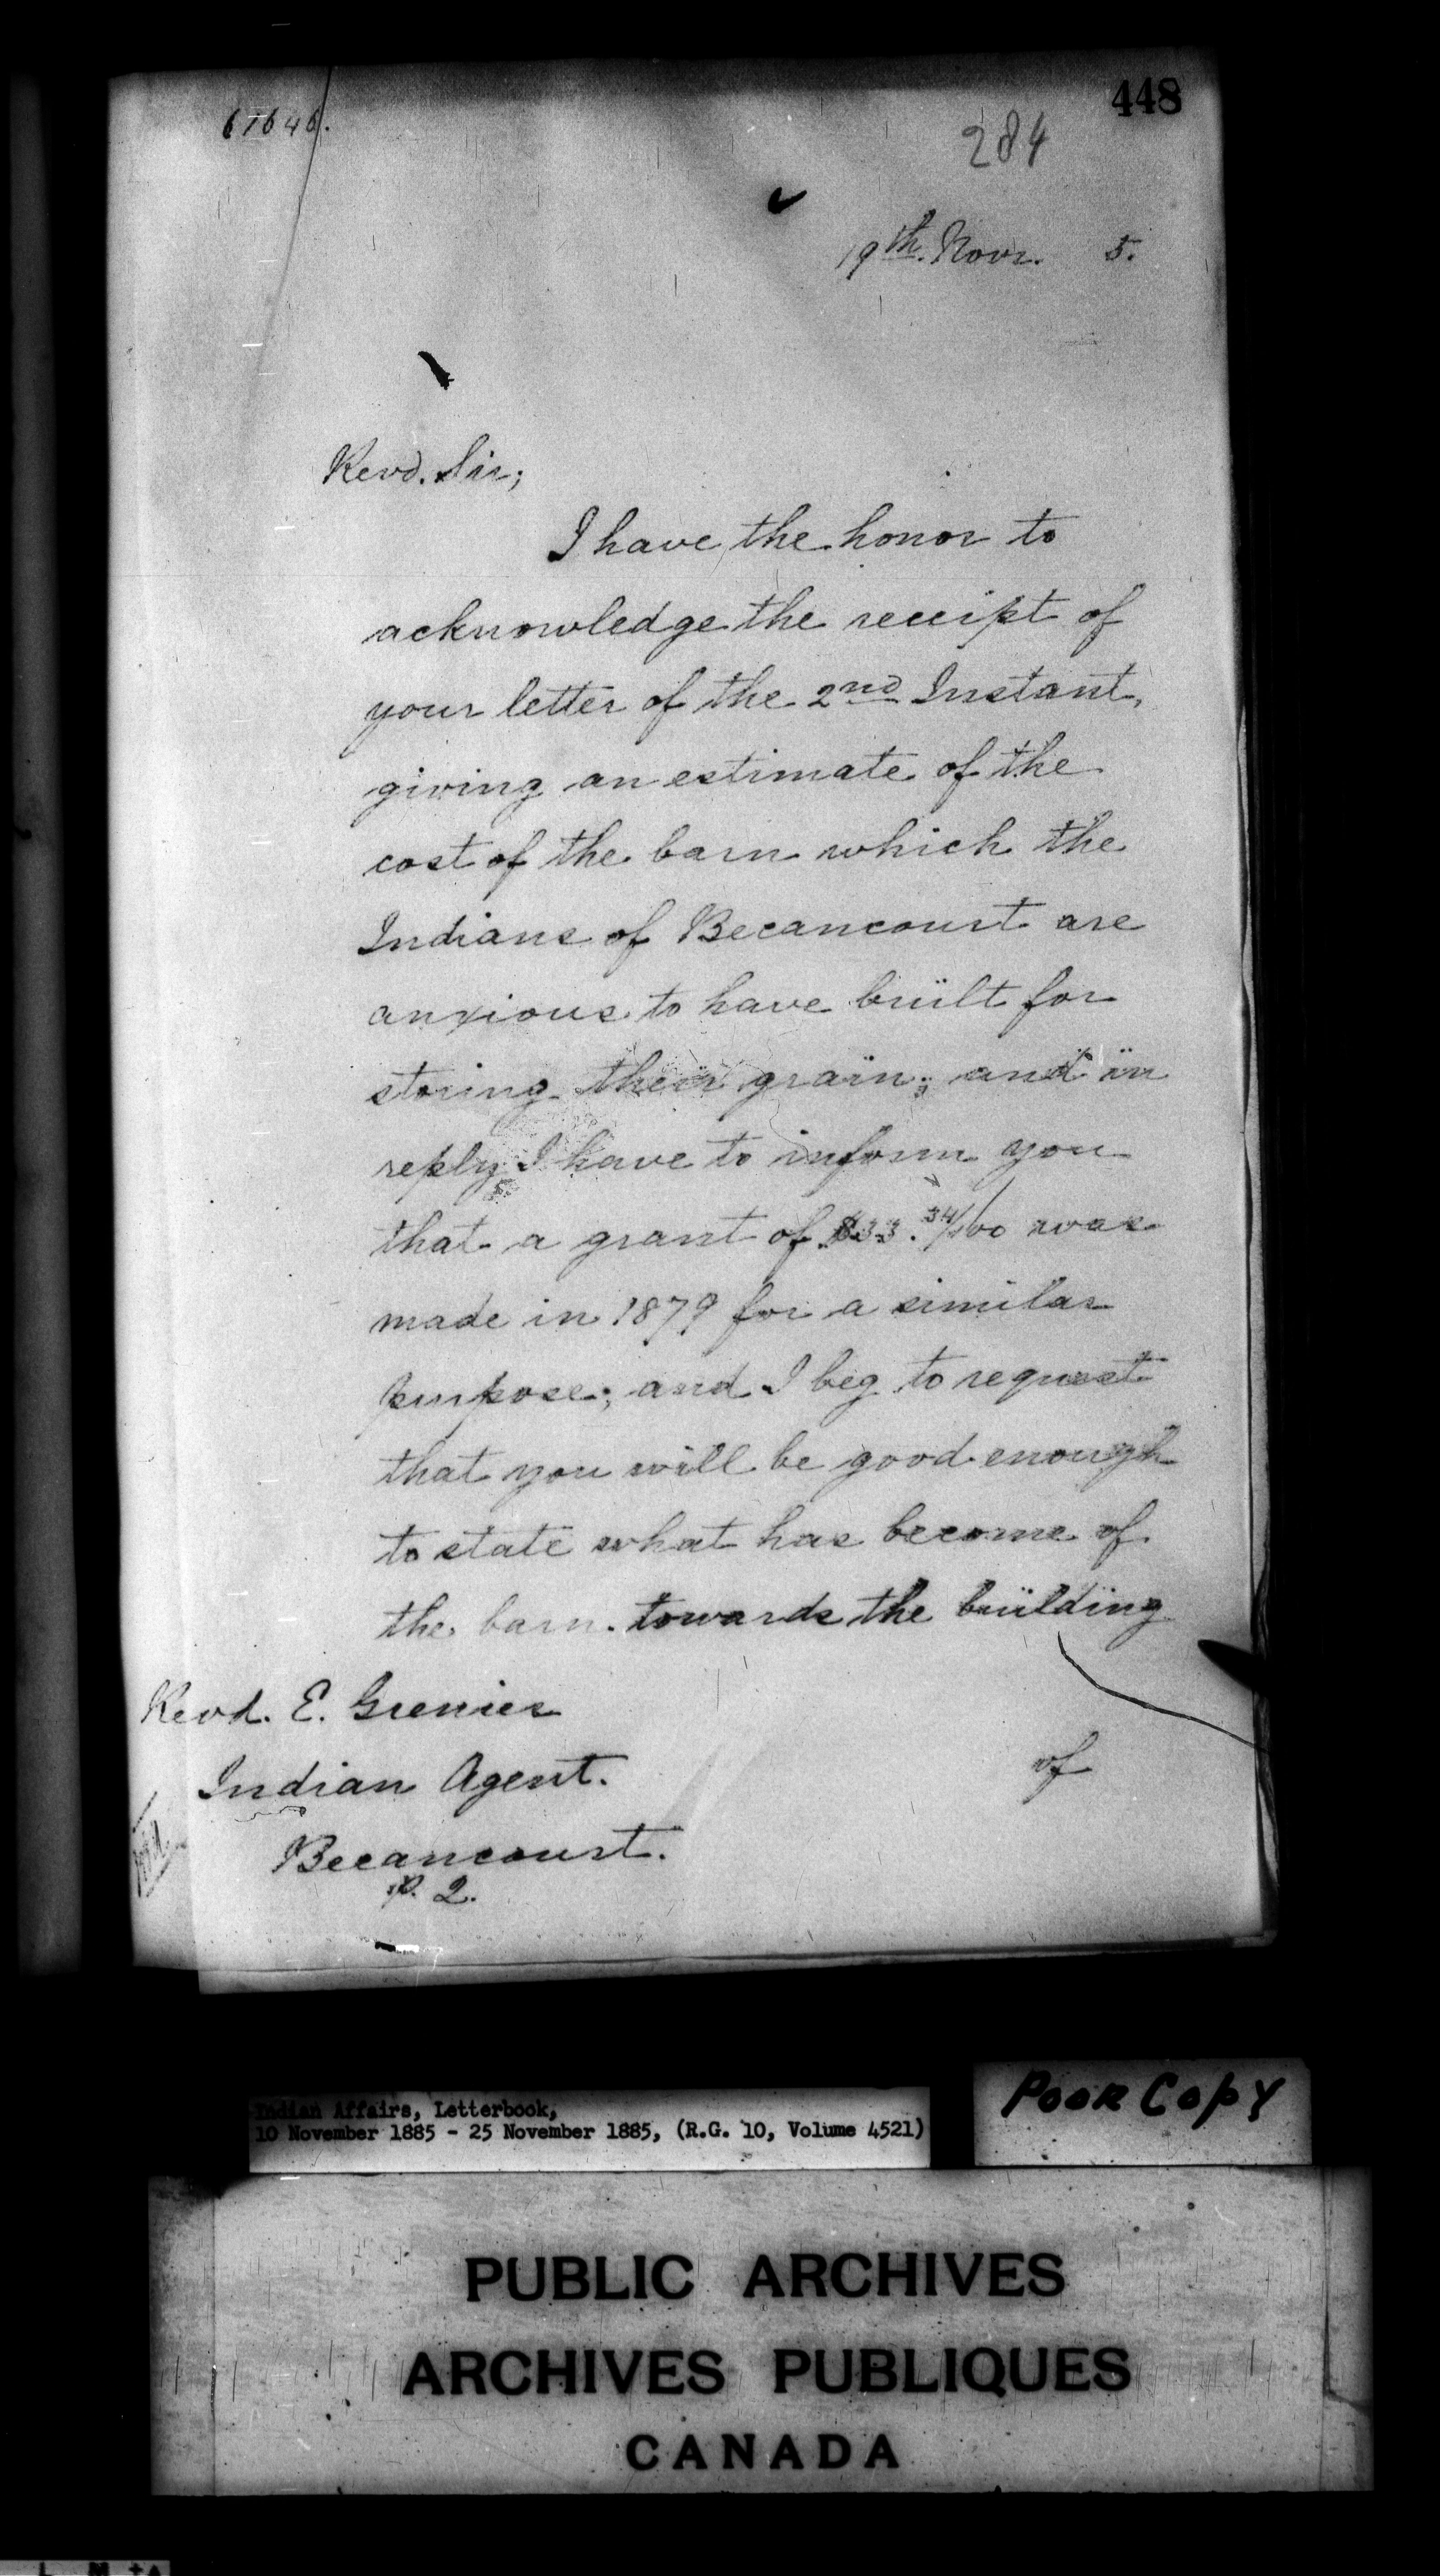 448
67646.
284
19th. Novr. 5.
Revd. Sir;
I have the honor to
acknowledge the receipt of
your letter of the 2nd Instant,
giving an estimate of the
cost of the barn which the
Indians of Becancourt are
anxious to have built for
storing their grain; and in
reply I have to inform you
that a grant of $33.34/100 was
made in 1879 for a similar
purpose; and I beg to request
that you will be good enough
to state what has become of
the barn towards the building
Revd. E. Grenier
of
Indian Agent.
Becancourt.
P. 2.
Indian Affairs, Letterbook,
10 November 1885 - 25 November 1885, (R.G. 10, Volume 4521)
Poor Copy
PUBLIC ARCHIVES
ARCHIVES PUBLIQUES
CANADA